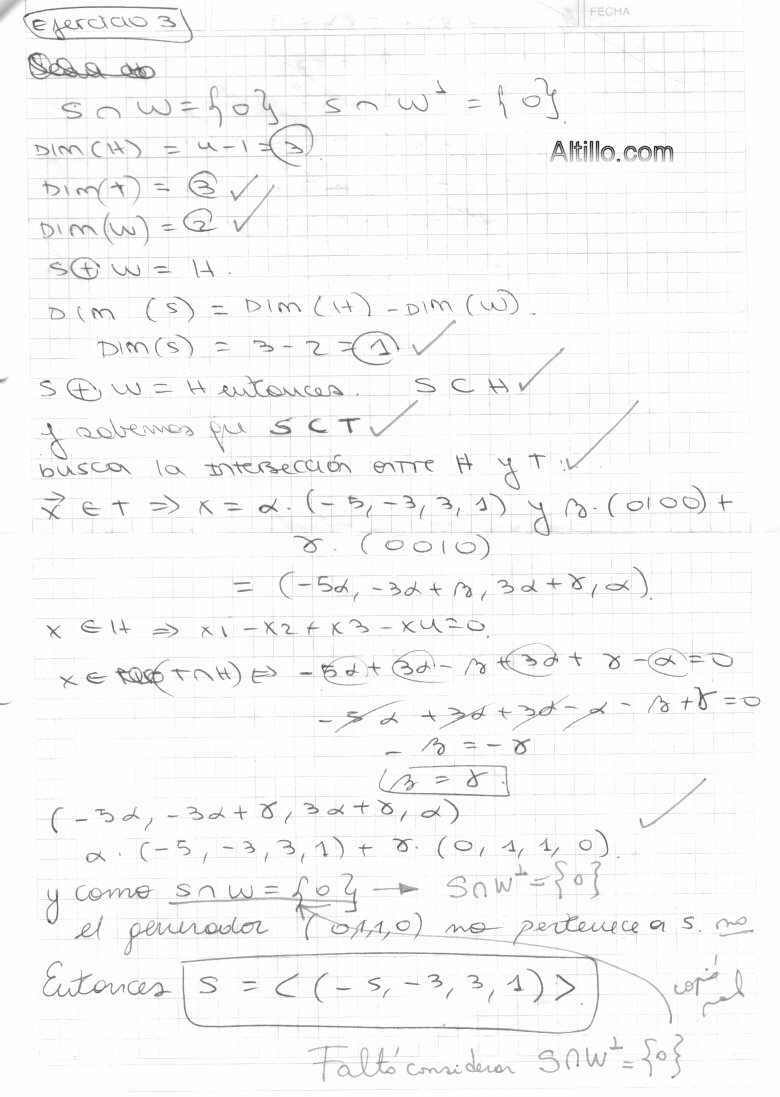 FECHA
Ejercicio 3
S ∩ W = {0}   S ∩ W^⊥ = {0}.
Altillo.com
DIM(H) = 4 - 1 = 3
DIM(T) = 3 ✓
DIM(W) = 2 ✓
S ⊕ W = H.
DIM (S) = DIM(H) - DIM(W).
DIM(S) = 3 - 2 = 1 ✓
S ⊕ W = H entonces. S ⊂ H ✓
y sabemos que S ⊂ T ✓
busca la Intersección entre H y T : ✓
x⃗ ∈ T ⇒ x = α. (-5, -3, 3, 1) y β. (0100) +
γ. (0010)
= (-5α, -3α + β, 3α + γ, α).
x ∈ H ⇒ x1 - x2 + x3 - x4 = 0.
x ∈ (T ∩ H) ⇔ -5α + 3α - β + 3α + γ - α = 0
-5α + 3α + 3α - α - β + γ = 0
- β = - γ
β = γ.
(-5α, -3α + γ, 3α + γ, α) ✓
α. (-5, -3, 3, 1) + γ. (0, 1, 1, 0).
y como S ∩ W = {0} → S ∩ W^⊥ = {0}
el generador (0,1,1,0) no pertenece a S. no
copié
mal
Entonces S = < (-5, -3, 3, 1) >
Faltó considerar S ∩ W^⊥ = {0}